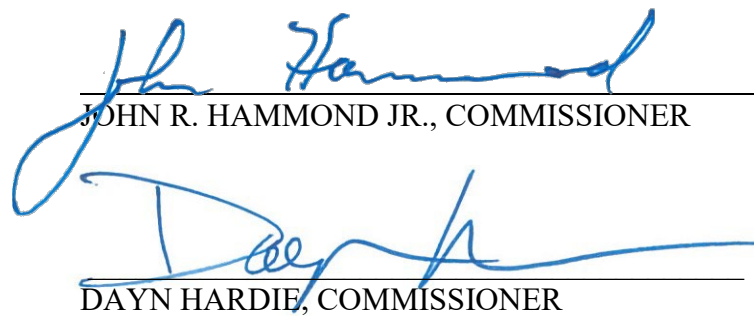 John Hammond
JOHN R. HAMMOND JR., COMMISSIONER
Dayn
DAYN HARDIE, COMMISSIONER